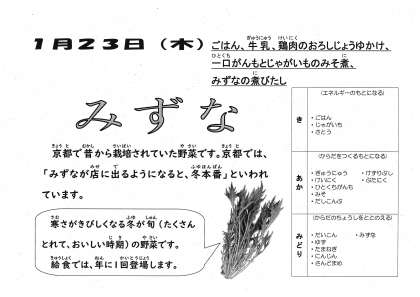 1月23日（木）
ごはん、牛乳、鶏肉のおろしじょうゆかけ、
一口がんもとじゃがいものみそ煮、
みずなの煮びたし
みずな
京都で昔から栽培されていた野菜です。京都では、
「みずなが店に出るようになると、冬本番」といわれ
ています。
寒さがきびしくなる冬が旬（たくさん
とれて、おいしい時期）の野菜です。
給食では、年に1回登場します。
き
（エネルギーのもとになる）
・ごはん
・じゃがいも
・さとう
あか
（からだをつくるもとになる）
・ぎゅうにゅう ・けずりぶし
・けいにく ・ぶたにく
・ひとくちがんも
・みそ
・だしこんぶ
みどり
（からだのちょうしをととのえる）
・だいこん ・みずな
・ゆず
・たまねぎ
・にんじん
・さんどまめ